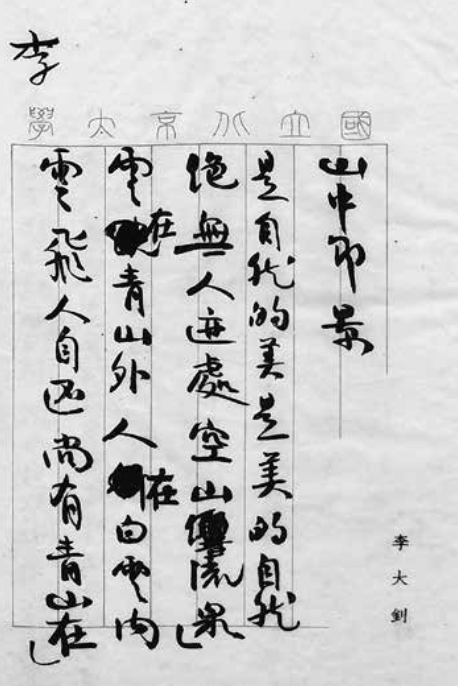 國立北京大學
山中即景
是自然的美是美的自然
絶無人迹處空山響流泉
雲在青山外人在白雲内
雲飛人自还尚有青山在
李
李大釗